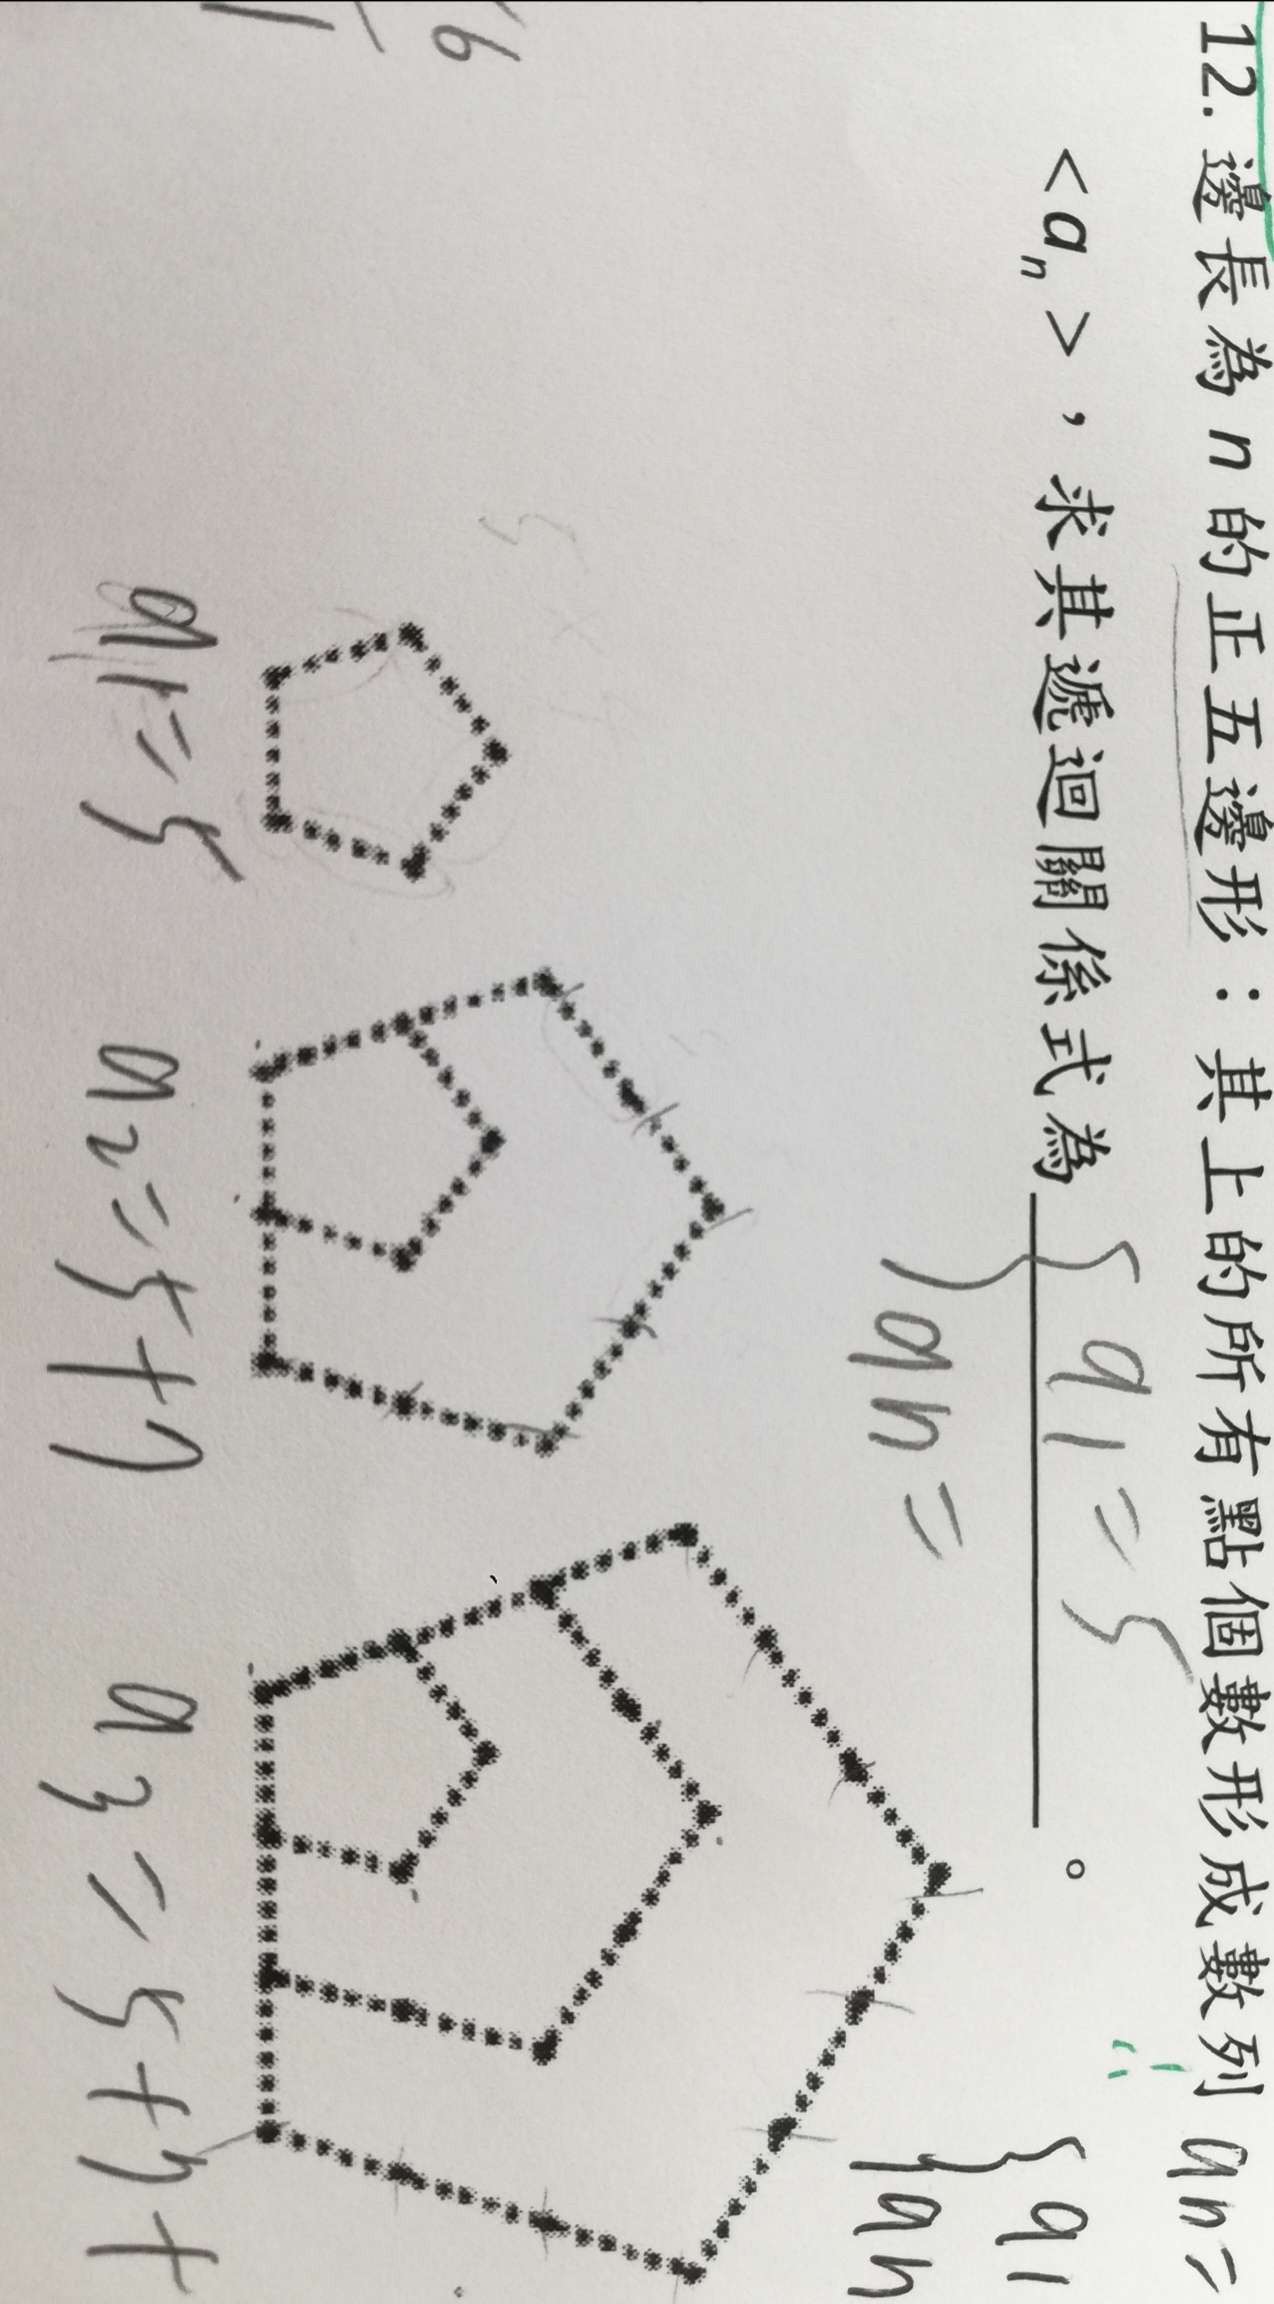 12. 邊長為n的正五邊形：其上的所有點個數形成數列 an=
<an>，求其遞迴關係式為________。
{ a1=5
an=
{ a1
an
a1=5
a2=5+7
a3=5+7+